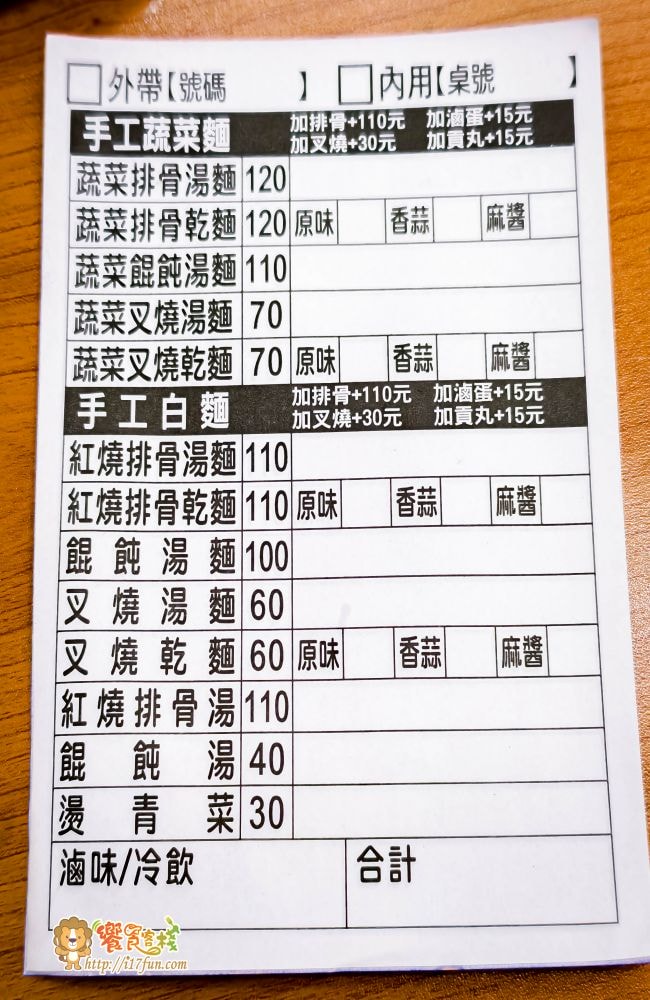 外帶【號碼 】 內用【桌號 】
手工蔬菜麵 加排骨+110元 加滷蛋+15元
加叉燒+30元 加貢丸+15元
蔬菜排骨湯麵 120
蔬菜排骨乾麵 120 原味 香蒜 麻醬
蔬菜餛飩湯麵 110
蔬菜叉燒湯麵 70
蔬菜叉燒乾麵 70 原味 香蒜 麻醬
手工白麵 加排骨+110元 加滷蛋+15元
加叉燒+30元 加貢丸+15元
紅燒排骨湯麵 110
紅燒排骨乾麵 110 原味 香蒜 麻醬
餛飩湯麵 100
叉燒湯麵 60
叉燒乾麵 60 原味 香蒜 麻醬
紅燒排骨湯 110
餛飩湯 40
燙青菜 30
滷味/冷飲 合計
饗食客棧
http://i17fun.com